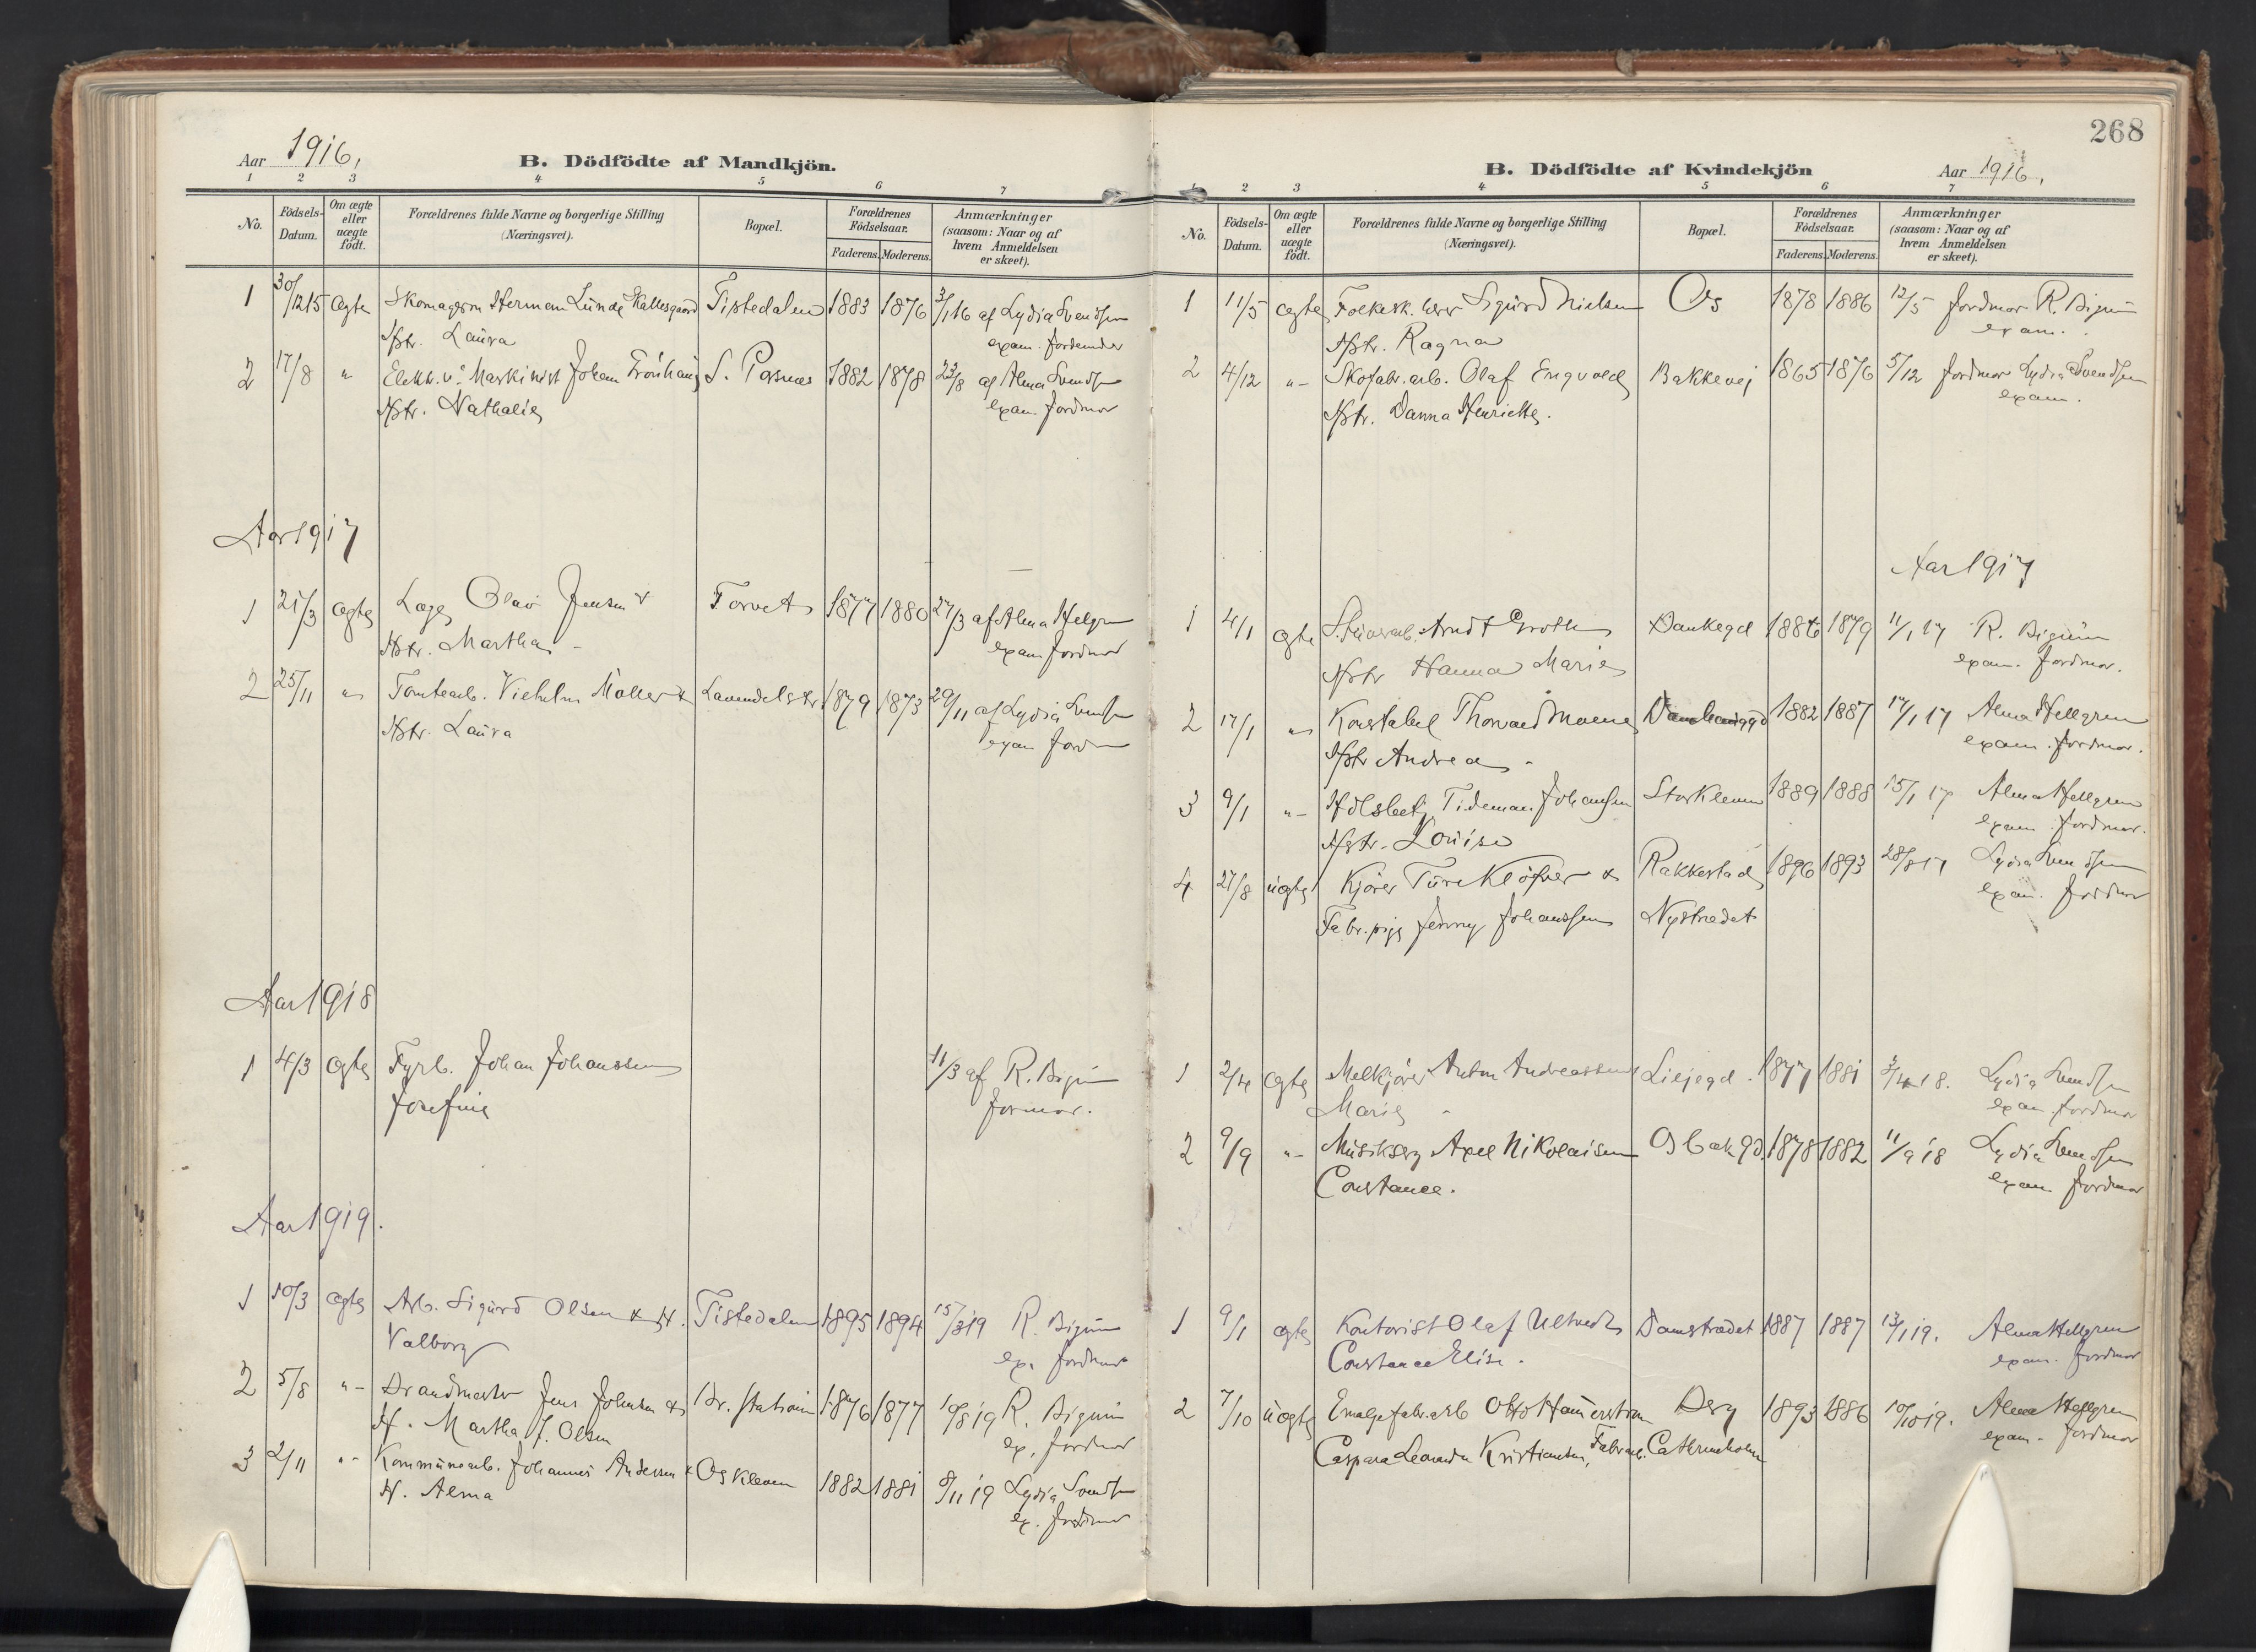 Aar 1916,
B. Dödfödte af Mandkjön.
1 2 3 4 5 6 7
No.
Födsels-Datum.
Om ægte eller uægte født.
Forældrenes fulde Navne og borgerlige Stilling
(Næringsvei).
Bopæl.
Forældrenes Födselsaar.
Faderens. Moderens.
Anmærkninger
(saasom: Naar og af
hvem Anmeldelsen
er skeet).
1 30/12 15 ægte Skomagersv. Herman Lunde Tistedalen 1883 1876 3/1 16 af Lydia Svendsen
Hstr. Laura exam. Jordemoder
2 17/8 " Elektr. v. Maskinist Johan S. 1882 1878 23/8 af Alma
Hstr. Nathalie exam. Jordmor
Aar 1917
1 21/3 ægte Læge Olav Jensen & Torvet 1877 1880 27/3 af Alma Helgren
Hstr. Martha exam Jordmor
2 25/11 " Tomtearb. Vilhelm Møller & Lavendelstr 1879 1873 29/11 af Lydia Svendsen
Hstr. Laura exam Jordm
Aar 1918
1 4/3 ægte Fyrb. Johan Johanssen 11/3 af R. Bigum
Josefine Jormor.
Aar 1919.
1 10/3 ægte Arb. Sigurd Olsen & H. Tistedalen 1895 1894 15/3 19 R. Bigum
Valborg ex. Jordmor
2 5/8 "- Brandmester Jens Johnsen & Br. station 1876 1877 10/8 19 R. Bigum
H. Martha J. Olsen ex. Jordmor
3 2/11 "- Kommunearb. Johannes Andersen & Oskleven 1882 1881 8/11 19 Lydia Svendsen
H. Alma ex. Jordmor
268
B. Dödfödte af Kvindekjön
Aar 1916,
1 2 3 4 5 6 7
No.
Födsels-Datum.
Om ægte eller uægte født.
Forældrenes fulde Navne og borgerlige Stilling
(Næringsvei).
Bopæl.
Forældrenes Födselsaar.
Faderens. Moderens.
Anmærkninger
(saasom: Naar og af
hvem Anmeldelsen
er skeet).
1 11/5 ægte Folkesk. lærer Sigurd Nielsen Os 1878 1886 12/5 Jordmor R. Bigum
Hstr. Ragna exam.
2 4/12 "- Skofabr. arb. Olaf Engvold Bakkevej 1865 1876 5/12 Jordmor Lydia Svendsen
Hstr. Danna Henriette. exam.
Aar 1917
1 4/1 ægte Arndt Groth Bankegd 1886 1879 11/1 17 R. Bigum
Hstr Hanna Marie exam. Jordmor.
2 17/1 " Konstabel Thorvald Moene 1882 1887 17/1 17 Alma Hellgren
Hstr Andrea exam. Jordmor.
3 9/1 "- Tideman Johansen Storkleven 1889 1888 15/1 17 Alma Hellgren
Hstr. Louise exam. Jordmor.
4 27/8 uægte Kjører Ture & Rakkestad 1896 1893 28/8 17 Lydia Svendsen
Fabr. pige Jenny Johanssen Nystrædet exam. Jordmor
1 2/4 ægte Melkjører Anton Andreassen Liljegd. 1877 1881 3/4 18. Lydia Svendsen
Marie exam. Jordmor
2 9/9 "- Musikserg Axel Nikolaisen Osbak gd. 1878 1882 11/9 18 Lydia Svendsen
Constance. exam. Jordmor
1 9/1 ægte Kontorist Olaf Damstrædet 1887 1887 13/1 19. Alma Hellgren
Constance Elise. exam. Jordmor
2 7/10 uægte Emaljefabr. arb Otto Hammerstrøm Berg 1893 1886 10/10 19. Alma Hellgren
Caspara Leonarda Kristiansen, Fabr arb. Cathrineholm exam. Jordmor